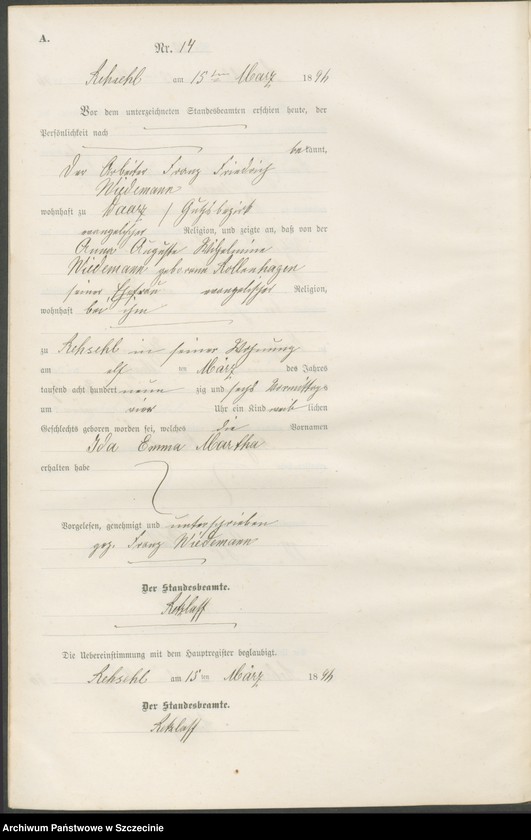 A.
Nr. 14
Rehsehl am 15ten März 1896
Vor dem unterzeichneten Standesbeamten erschien heute, der
Persönlichkeit nach
bekannt,
Der Arbeiter Franz Friedrich
Wiedemann
wohnhaft zu Daarz / Gutsbezirk
evangelischer Religion, und zeigte an, daß von der
Anna Auguste Wilhelmine
Wiedemann geborene Rollenhagen
seiner Ehefrau evangelischer Religion,
wohnhaft bei ihm
zu Rehsehl in seiner Wohnung
am elf ten März des Jahres
tausend acht hundert neun zig und sechs Vormittags
um vier Uhr ein Kind weib lichen
Geschlechts geboren worden sei, welches die Vornamen
Ida Emma Martha
erhalten habe
Vorgelesen, genehmigt und unterschrieben
gez. Franz Wiedemann
Der Standesbeamte.
Retzlaff
Die Uebereinstimmung mit dem Hauptregister beglaubigt.
Rehsehl am 15ten März 1896
Der Standesbeamte.
Retzlaff
Archiwum Państwowe w Szczecinie